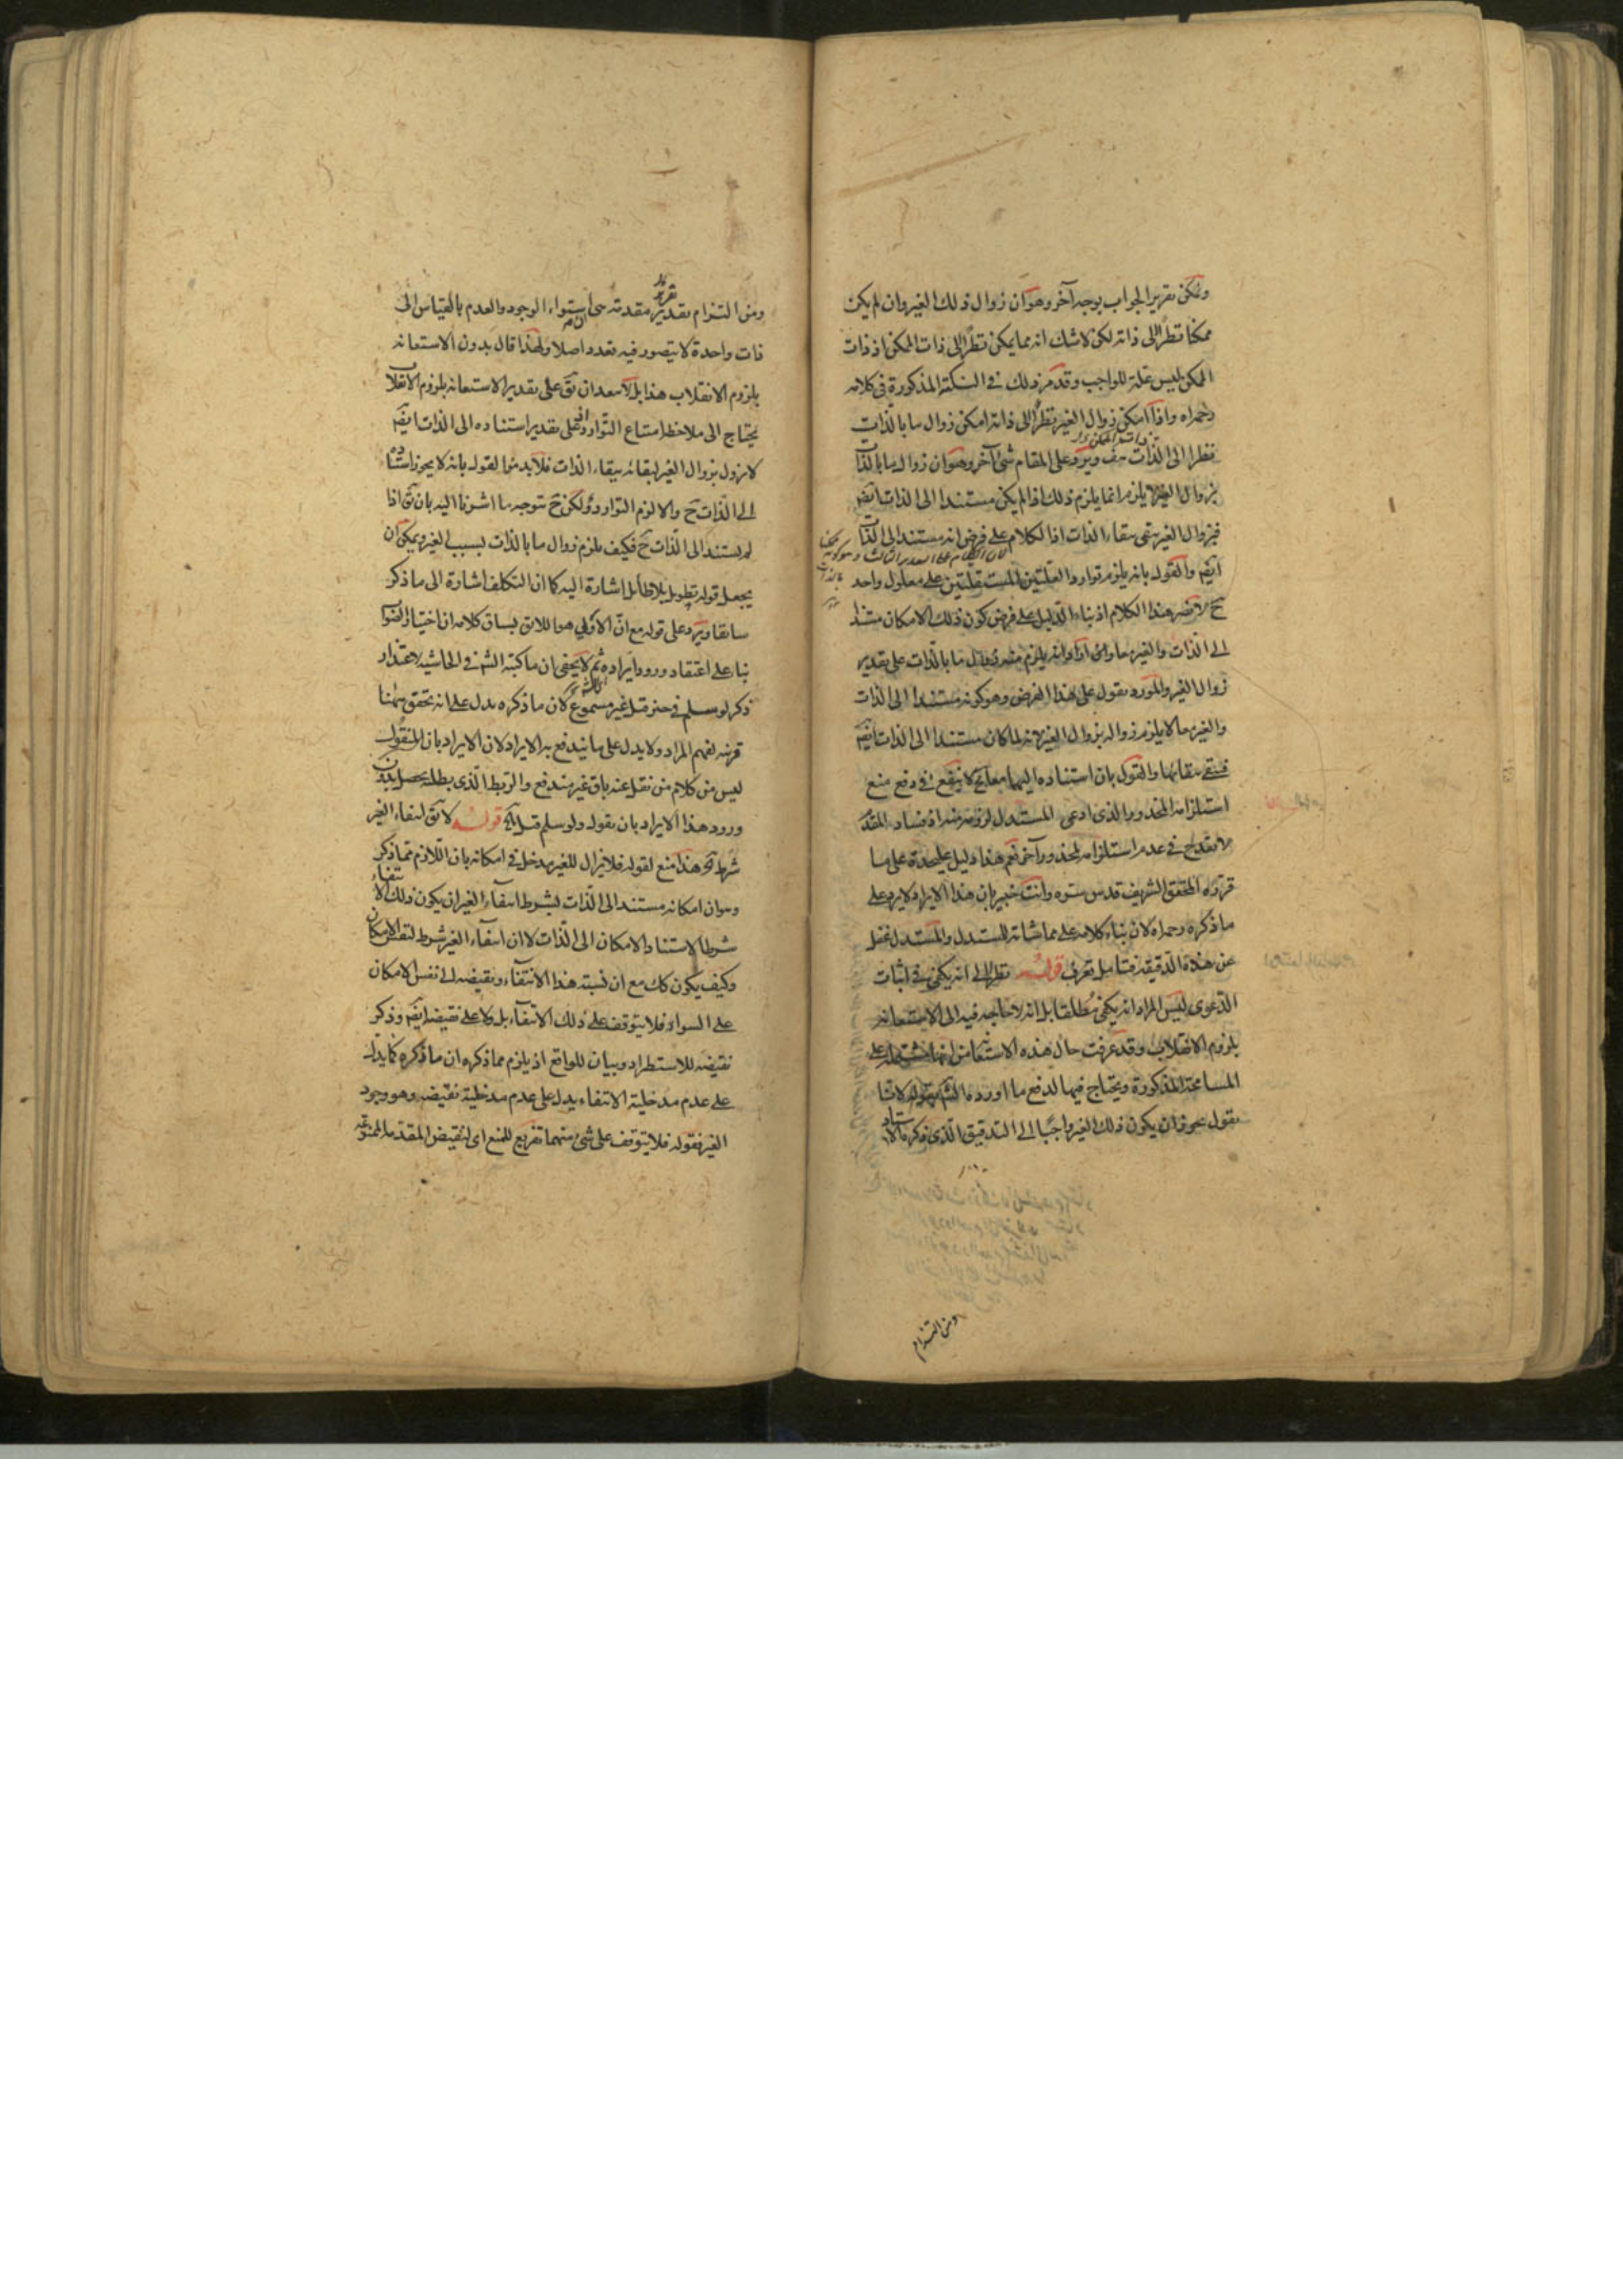 ويمكن تقرير الجواب بوجه آخر وهو ان زوال ذلك الغير وان لم يكن
ممكنا نظرًا الى ذاته لكن لا شك انه مما يمكن نظرًا الى ذات الممكن اذ ذات
الممكن ليس علة للواجب وقد مر ذلك في النكتة المذكورة في كلامه
رحمه الله واذا امكن زوال الغير نظرًا الى ذاته امكن زوال ما بالذات
نظرا الى الذات هف ويرد على المقام شئ آخر وهو ان زوال ما بالذات
بزوال الغير لا يلزم انما يلزم ذلك اذا لم يكن مستندا الى الذات ايضا
فبزوال الغير بقى ببقاء الذات اذا الكلام على فرض انه مستند الى الذات
ايضا والقول بانه يلزم توارد العلتين المستقلتين على معلول واحد
لان الكلام على التقدير الثالث وهو كونه ممكنا بالذات
ح لا يضر هذا الكلام اذ بناء الدليل على فرض كون ذلك الامكان مستندا
الى الذات والغير معا
ما بالذات على تقدير
زوال الغير والمورد يقول على هذا الفرض وهو كونه مستندا الى الذات
والغير معا لا يلزم زواله بزوال الغير لانه لما كان مستندا الى الذات ايضا
فيبقى ببقائها والقول بان استناده اليهما معا مح لا ينفع في دفع منع
استلزامه المحذور الذي ادعى المستدل لزومه منه اذ فساد المقدم
لا يقدح في عدم استلزامه لمحذور آخر نعم هذا دليل عليحدة على ما
قرره المحقق الشريف قدس سره وانت خبير بان هذا الايراد لا يرد على
ما ذكره رحمه الله لان بناء كلامه على مماشاة المستدل والمستدل غفل
عن هذه الدقيقة فتامل تعرف قوله نظرا الى انه يكفي في اثبات
الدعوى ليس المراد انه يكفي مطلقا بل انه لا حاجة فيه الى الاستعانة
بلزوم الانقلاب وقد عرفت حال هذه الاستعانة من انها مشتملة على
المسامحة المذكورة ويحتاج فيها لدفع ما اورده الشم بقوله لانا
نقول يجوز ان يكون ذلك الغير واجبًا الى التدقيق الذي ذكره الاستاد
ومن التزام
ومن التزام تقرير مقدمة هي ان استواء الوجود والعدم بالقياس الى
ذات واحدة لا يتصور فيه تعدد اصلا ولهذا قال بدون الاستعانة
بلزوم الانقلاب هذا بل لا يبعد ان يق على تقدير الاستعانة بلزوم الانقلاب
يحتاج الى ملاحظة امتناع التوارد اذ على تقدير استناده الى الذات ايضا
لا يزول بزوال الغير لبقائه ببقاء الذات فلا بد من القول بانه لا يجوز استناده
الى الذات ح والا لزم التوارد ولكن ح يتوجه ما اشرنا اليه بان يق اذا
لم يستند الى الذات ح فكيف يلزم زوال ما بالذات بسبب الغير ويمكن ان
يجعل قوله تطويل بلا طائل اشارة اليه كما ان التكلف اشارة الى ما ذكر
سابقا ويرد على قوله مع ان الاولى هو اللائق بسياق كلامه ان اختيار
بناء على اعتقاد ورود ايراده ثم لا يخفى ان ما كتبه الشم في الحاشية لاعتذار
ذكر لو سلم في حيز قيل غير مسموع لان ما ذكره يدل على انه تحقق ههنا
قرينة لفهم المراد ولا يدل على ما يندفع به الايراد لان الايراد بان المنقول
ليس من كلام من نقل عنه باق غير مندفع والربط الذي يطلبه يحصل بدون
ورود هذا الايراد بان يقول ولو سلم قيل آه قوله لا يق انتفاء الغير
شرط آه هذا منع لقوله فلا يزال للغير مدخل في امكانه بان اللازم مما ذكر
وهو ان امكانه مستند الى الذات بشرط انتفاء الغير ان يكون ذلك الانتفاء
شرطا لاستناد الامكان الى الذات لا ان انتفاء الغير شرط لنفس الامكان
وكيف يكون كك مع ان نسبة هذا الانتفاء ونقيضه الى نفس الامكان
على السواء فلا يتوقف على ذلك الانتفاء بل ولا على نقيضه ايضا وذكر
نقيضه للاستطراد وبيان للواقع اذ يلزم مما ذكره ان ما ذكره كما يدل
على عدم مدخلية الانتفاء يدل على عدم مدخلية نقيضه وهو وجود
الغير فقوله فلا يتوقف على شئ منهما تفريع للمنع اى لنقيض المقدمة الممنوعة